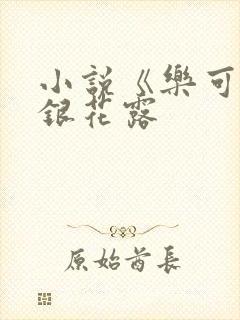 小説《樂可
銀花露
原始酋長